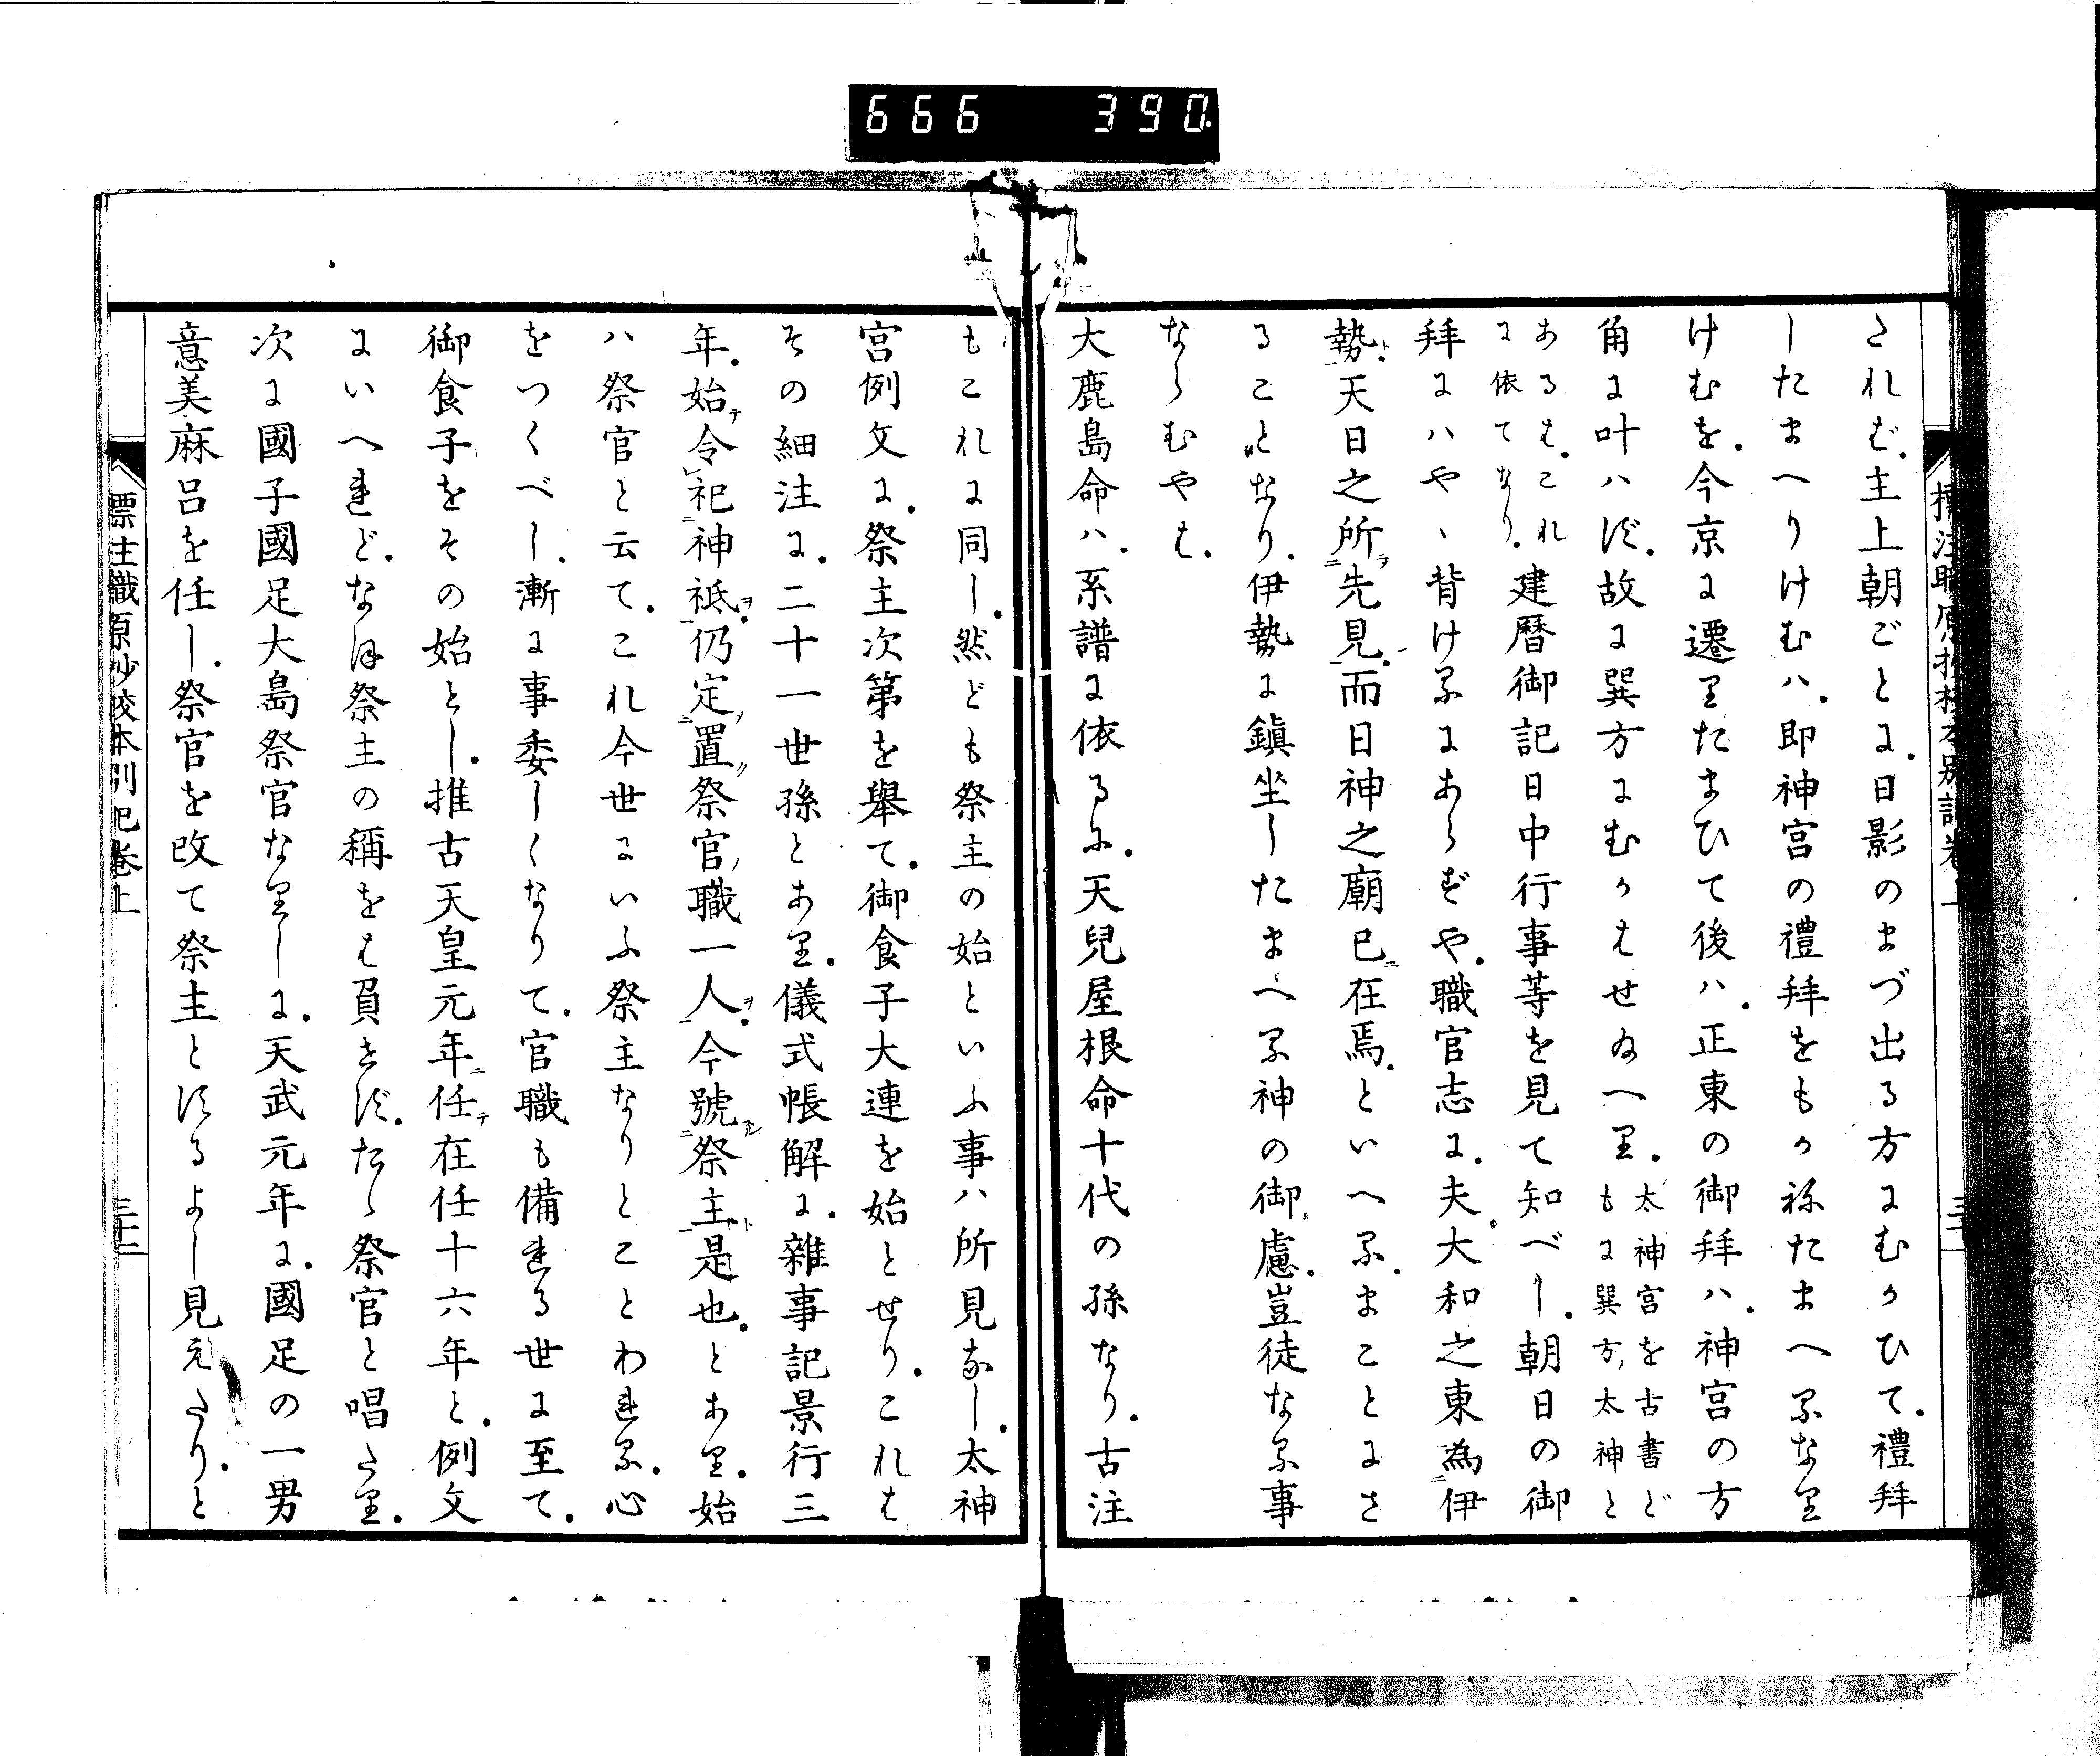 666 390
標注職原抄校本別記卷上
されば、主上朝ごとに、日影のまづ出る方にむかひて、禮拜
したまへりけむハ、即神宮の禮拜をもかねたまへるなり
けむを、今京に遷りたまひて後ハ、正東の御拜ハ、神宮の方
角に叶ハず、故に巽方にむかはせ給へり、太神宮を古書ど
もに巽方、太神と
あるは、これ
に依てなり、建暦御記日中行事等を見て知べし、朝日の御
拜にハやゝ背けるにあらずや、職官志に、夫大和之東為伊
勢、天日之所先見、而日神之廟已在焉、といへる、まことにさ
ることなり、伊勢に鎮坐したまへる神の御慮、豈徒なる事
ならむやは、
大鹿島命ハ、系譜に依るに、天兒屋根命十代の孫なり、古注
もこれに同し、然ども祭主の始といふ事ハ所見なし、太神
宮例文に、祭主次第を擧て、御食子大連を始とせり、これは
その細注に、二十一世孫とあり、儀式帳解に、雜事記景行三
年、始令祀神祇、仍定置祭官職一人、今號祭主是也、とあり、始
ハ祭官と云て、これ今世にいふ祭主なりとことわれる、心
をつくべし、漸に事委しくなりて、官職も備れる世に至て、
御食子をその始とし、推古天皇元年任在任十六年と、例文
にいへれど、なほ祭主の稱をは負さず、たゝ祭官と唱たり、
次に國子國足大島祭官なりしに、天武元年に、國足の一男
意美麻呂を任し、祭官を改て祭主とするよし見えたり、と
標注職原抄校本別記卷上